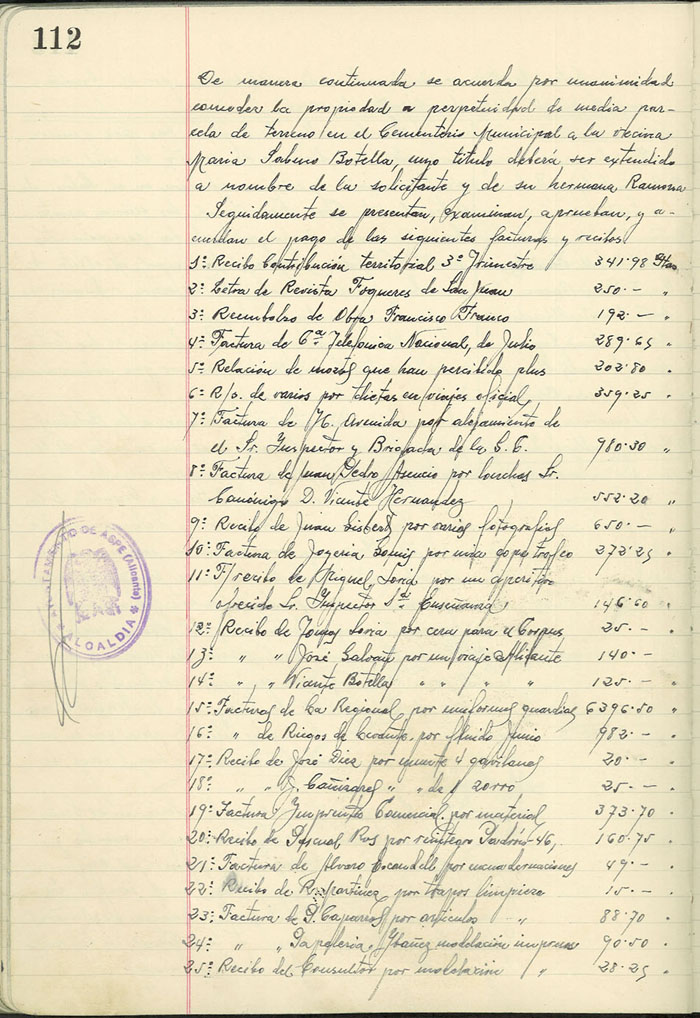 112
De manera continuada se acuerda por unanimidad
conceder la propiedad a perpetuidad de media par-
cela de terreno en el Cementerio Municipal a la vecina
Maria Sabuco Botella, cuyo titulo deberá ser extendido
a nombre de la solicitante y de su hermana Ramona
Seguidamente se presentan, examinan, aprueban, y a-
cuerdan el pago de las siguientes facturas y recibos
1º Recibo Contribución territorial 3º Trimestre 341·98 Ptas
2º Letra de Revista Fogueres de San Juan 250·— "
3º Reembolso de Obra Francisco Franco 192·— "
4º Factura de Cª Telefonica Nacional, de Julio 289·65 "
5º Relación de mozos que han percibido plus 202·80 "
6º R/o. de varios por dietas en viajes oficial, 359·25 "
7º Factura de H. Avenida por alojamiento de
el Sr. Inspector y Brigada de la 980·30 "
8º Factura de Juan Pedro Asencio por lunchas Sr.
Canónigo D. Vicente Hernandez 552·20 "
9º Recibo de Juan Gisbert por varios fotografias 650·— "
10º Factura de Joyeria Gomis por una copa trofeo 272·25 "
11º F/recibo de Miguel Soria por un aperitivo
ofrecido Sr. Inspector 1ª Enseñanza 146·60 "
12º Recibo de Tomas Soria por cera para el Corpus 25·— "
13º " " José Galvañ por un viaje Alicante 140·— "
14º " " Vicente Botella " " " " 125·— "
15º Facturas de La Regional por uniformes guardias 6396·50 "
16º " de Riegos de Levante por fluido Junio 982·— "
17º Recibo de José Diez por muerte 4 gavilanes 20·— "
18º " " J. Cañizares " " de 1 zorro, 25·— "
19º Factura Imprenta Comercial por material 373·70 "
20º Recibo de Pascual Rus por reintegro Padrón 46, 160·75 "
21º Factura de Alvaro Escandell por encuadernaciones 49·— "
22º Recibo de R. Martinez por trapos limpieza 15·— "
23º Factura de P. Caparrós por articulos " 88·70 "
24º " " Papeleria Ibañez modelación impresa 90·50 "
25º Recibo del Consultor por modelación " 28·25 "
AYUNTAMIENTO DE ASPE (Alicante)
ALCALDIA